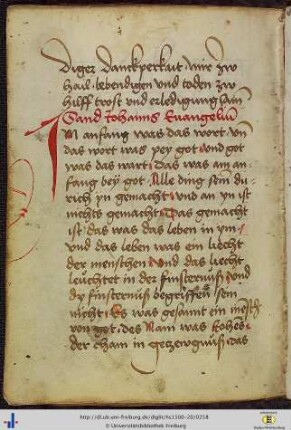 diger danckperkait · mir zw
hail · lebendigen und toden zw
hilff trost und erledigung
Sand Johanns Euangeliu
IM anfang was das wort · vn
das wort was pey got · vnd got
was das wart · Das was am an
fang bey got · Alle ding sein du-
rich yn gemacht · vnd an yn ist
nichts gemacht · Das gemacht
ist · das was das leben in ym
vnd das leben was ein liecht
der menschen · vnd das liecht
leuchtet in der finsternuß · vnd
dy finsternuß begriffen sein
nicht · Es was gesannt ein
von got · des Nam was Johes ·
der cham in getzewgnuß · das
http://dl.ub.uni-freiburg.de/diglit/hs1500-20/0218
© Universitätsbibliothek Freiburg